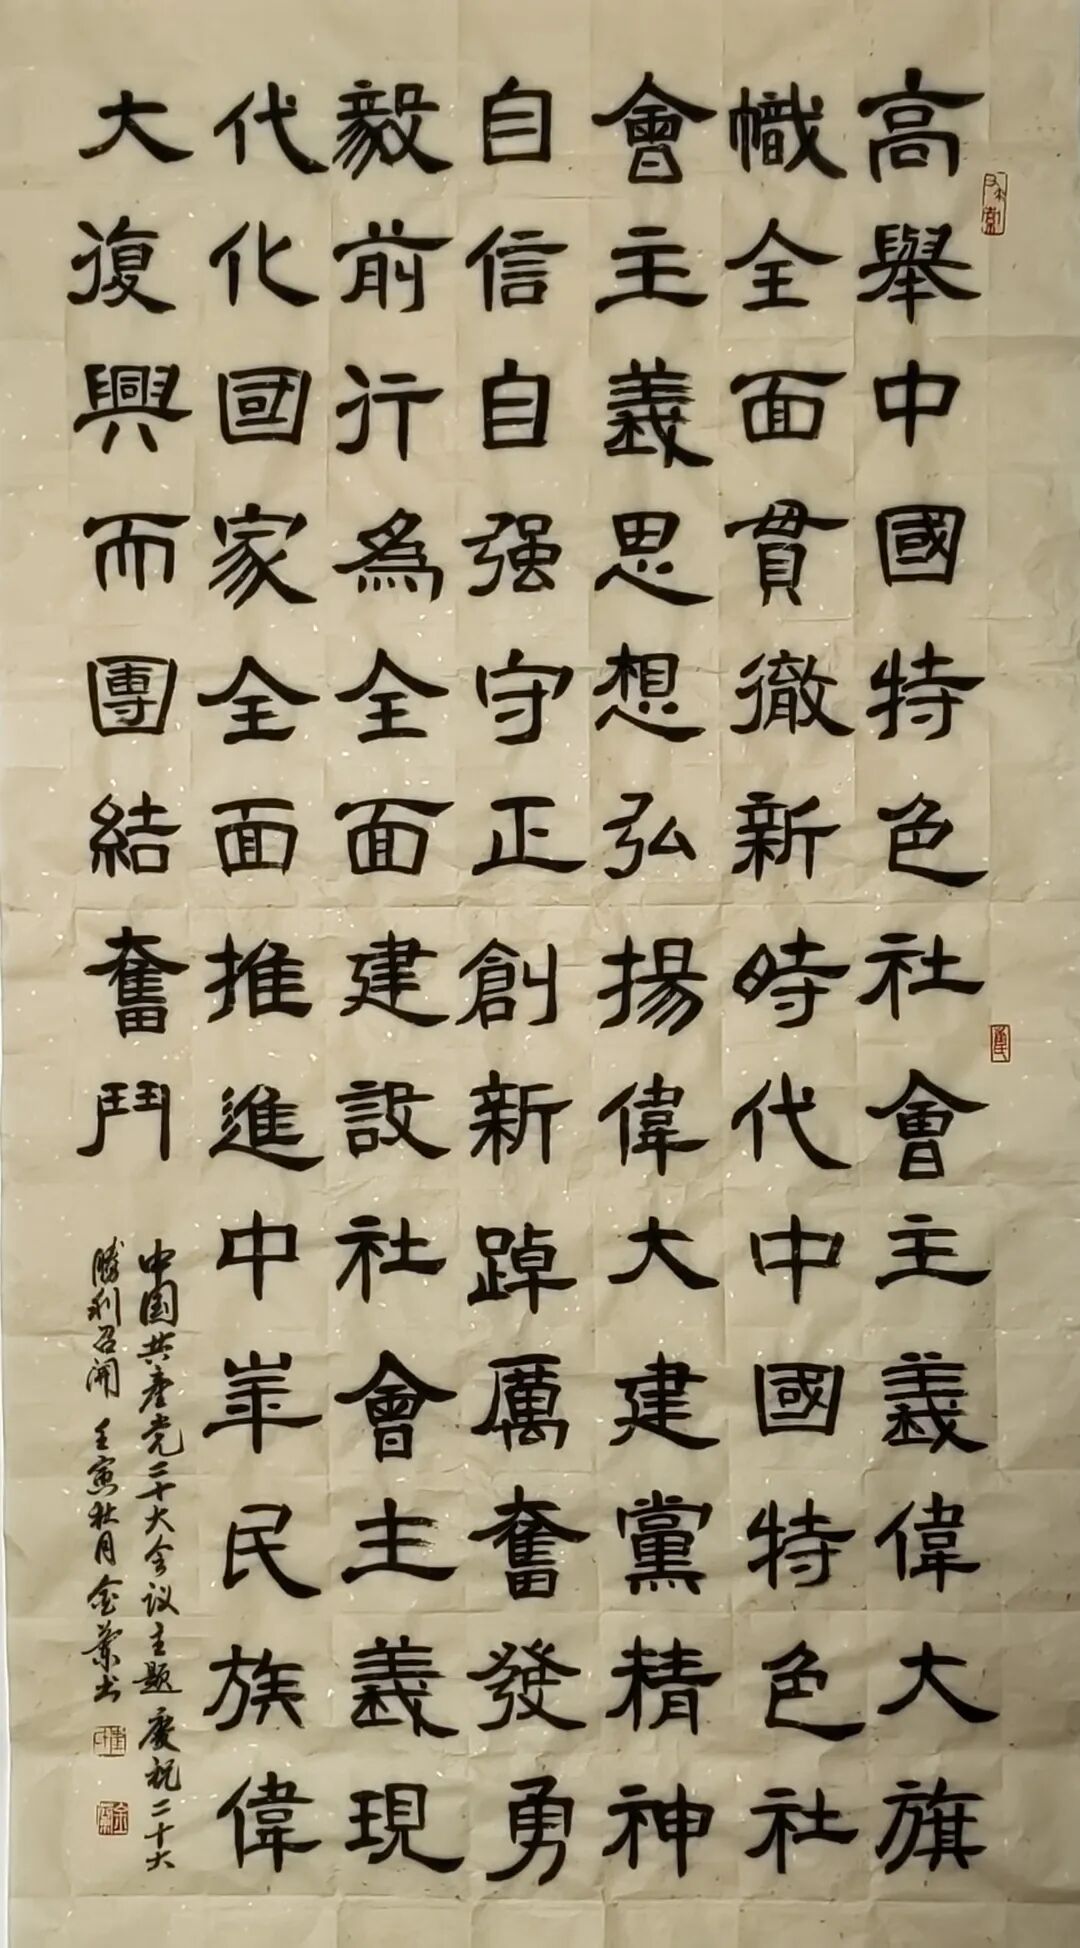 高舉中國特色社會主義偉大旗
幟全面貫徹新時代中國特色社
會主義思想弘揚偉大建黨精神
自信自强守正創新踔厲奮發勇
毅前行為全面建設社會主義現
代化國家全面推進中華民族偉
大復興而團結奮鬥
中国共產党二十大会议主题慶祝二十大
勝利召開壬寅秋月金蘭书